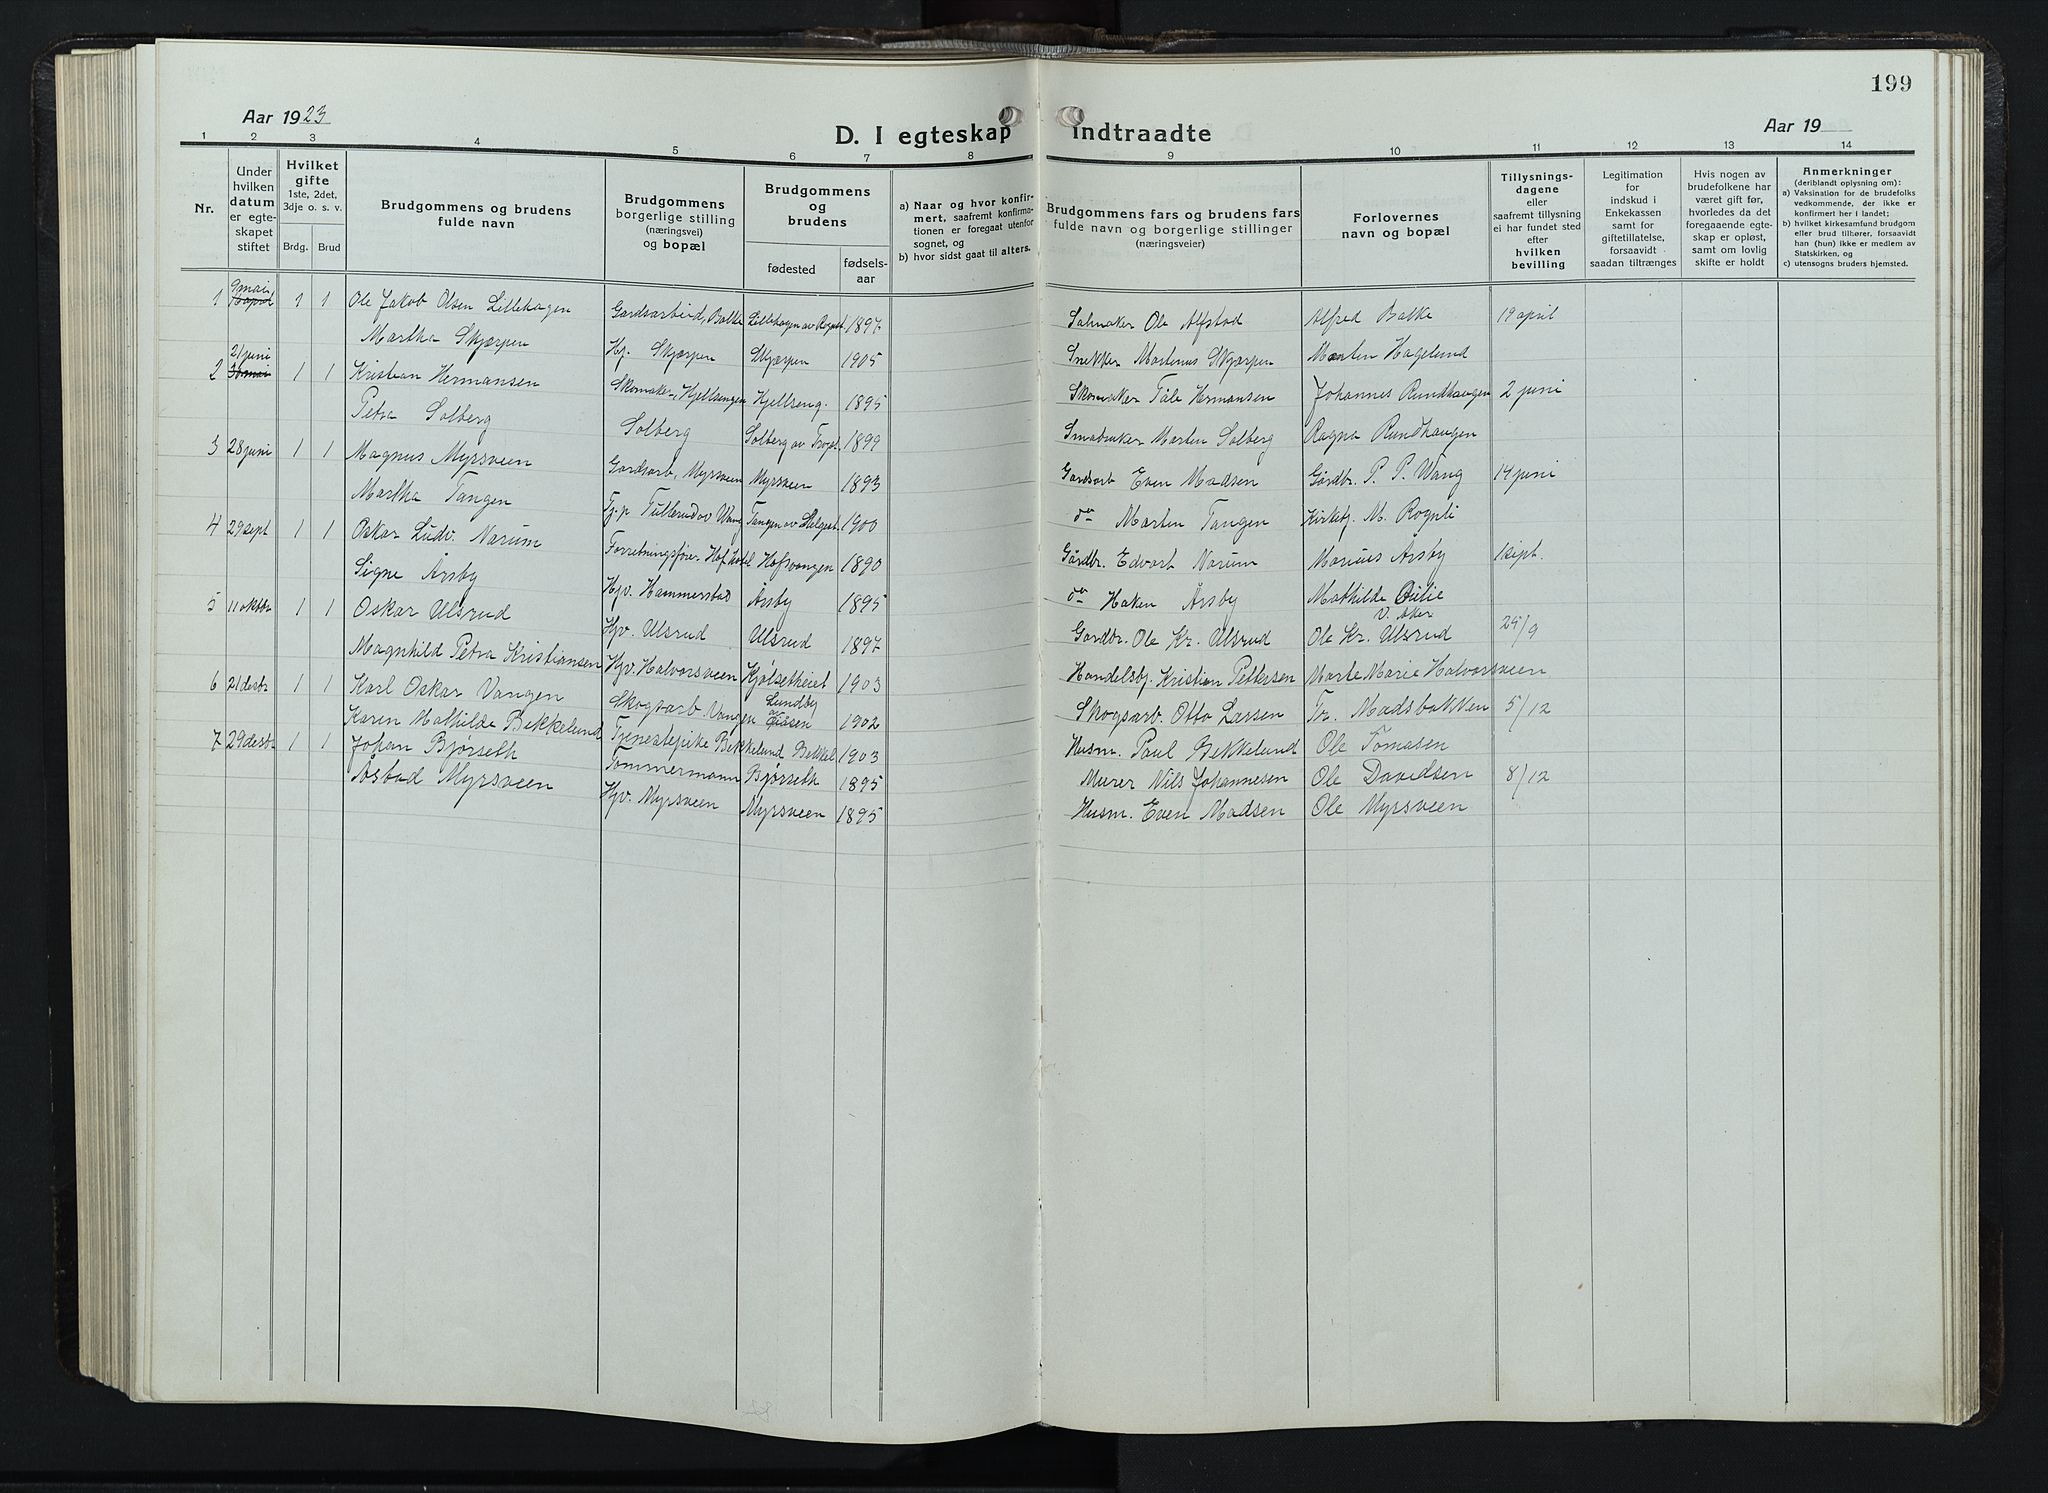 199
Aar 1923
Aar 19
D. I egteskap indtraadte
1 2 3 4 5 6 7 8 9 10 11 12 13 14
Nr.
Under hvilken datum er egteskapet stiftet
Hvilket gifte
1ste, 2det, 3dje o. s. v.
Brdg. Brud
Brudgommens og brudens fulde navn
Brudgommens borgerlige stilling (næringsvei) og bopæl
Brudgommens og brudens
fødested fødselsaar
a) Naar og hvor konfirmert, saafremt konfirmationen er foregaat utenfor sognet, og
b) hvor sidst gaat til alters.
Brudgommens fars og brudens fars fulde navn og borgerlige stillinger (næringsveier)
Forlovernes navn og bopæl
Tillysningsdagene eller saafremt tillysning ei har fundet sted efter hvilken bevilling
Legitimation for indskud i Enkekassen samt for giftetillatelse, forsaavidt saadan tiltrænges
Hvis nogen av brudefolkene har været gift før, hvorledes da det foregaaende egteskap er opløst, samt om lovlig skifte er holdt
Anmerkninger
(deriblandt oplysning om):
a) Vaksination for de brudefolks vedkommende, der ikke er konfirmert her i landet;
b) hvilket kirkesamfund brudgom eller brud tilhører, forsaavidt han (hun) ikke er medlem av Statskirken, og
c) utensogns bruders hjemsted.
1 9 mai 1 1 Ole Jakob Olsen Lillehagen Gardsarbeid, Balke Lillehagen av 1897 Salmaker Ole Alfstad Alfred Balke 19 april
Martha Skjærpen Hj. Skjærpen Skjærpen 1905 Snekker Martinus Skjærpen Marten Hagelund
2 21 juni 30 mai 1 1 Kristian Hermansen Skomaker, Hjellsengen Hjellseng. 1895 Skomaker Tale Hermansen Johannes Rundhaugen 2 juni
Petra Solberg Solberg Solberg av 1899 Smabruker Marten Solberg Ragna Rundhaugen
3 28 juni 1 1 Magnus Myrsveen Gardsarb, Myrsveen Myrsveen 1893 Gardsarb Even Madsen Gårdbr. P. P. Wang 14 juni
Martha Tangen Tj.p Wang Tangen av 1900 do Marten Tangen Kirketj. M. Rognli
4 29 sept 1 1 Oskar Ludv. Narum Forretningsfører. Hof. hotel Hofsvangen 1890 Gårdbr. Edvart Narum Marius Årsby 1 sept.
Signe Årsby Hjv. Hammerstad Årsby 1895 do Haken Årsby Mathilde V. Aker
5 11 oktbr 1 1 Oskar Ulsrud Hjv. Ulsrud Ulsrud 1897 Gardbr. Ole Kr. Ulsrud Ole Kr. Ulsrud 25/9
Magnhild Petra Kristiansen Hjv. Halvorsveen Kjølsetheiet 1903 Handelsbj. Kristian Pettersen Marte Marie Halvorsveen
6 21 desbr 1 1 Karl Oskar Vangen Skogsarb. Vangen Lundby 1902 Skogsarb. Otto Larsen Tr. Madsbakken 5/12
Karen Mathilde Bekkelund Tjenestepike Bekkelund Bekkel 1903 Husm. Paul Bekkelund Ole Tomasen
7 29 desbr 1 1 Johan Bjørseth Tømmermann Bjørseth 1895 Murer Nils Johannesen Ole Davidsen 8/12
Myrsveen Hjv. Myrsveen Myrsveen 1895 Husm. Even Madsen Ole Myrsveen